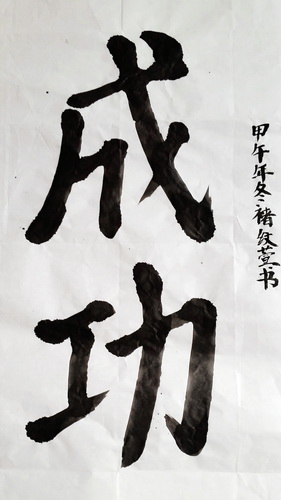 成功
甲午年冬褚纹萱书